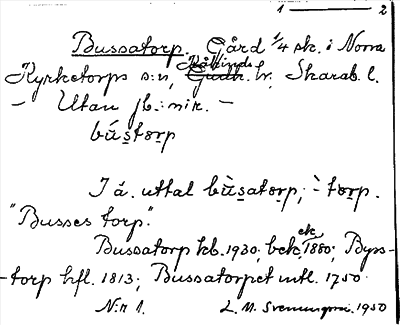 1 ——— 2
Bussatorp. Gård 1/4 sk. i Norra
Kyrketorps s:n, Kåkinds hr, Skarab. l.
— Utan jb.:nr. —
bús̱toṟp
I ä. uttal bùs̱atoṟp; `- toṟp.
"Busses torp".
Bussatorp kb. 1930; bek ek. 1880; Byss-
-torp hfl. 1813; Bussatorpet mtl. 1750.
N:r 1. L. M. Svenungsson. 1950